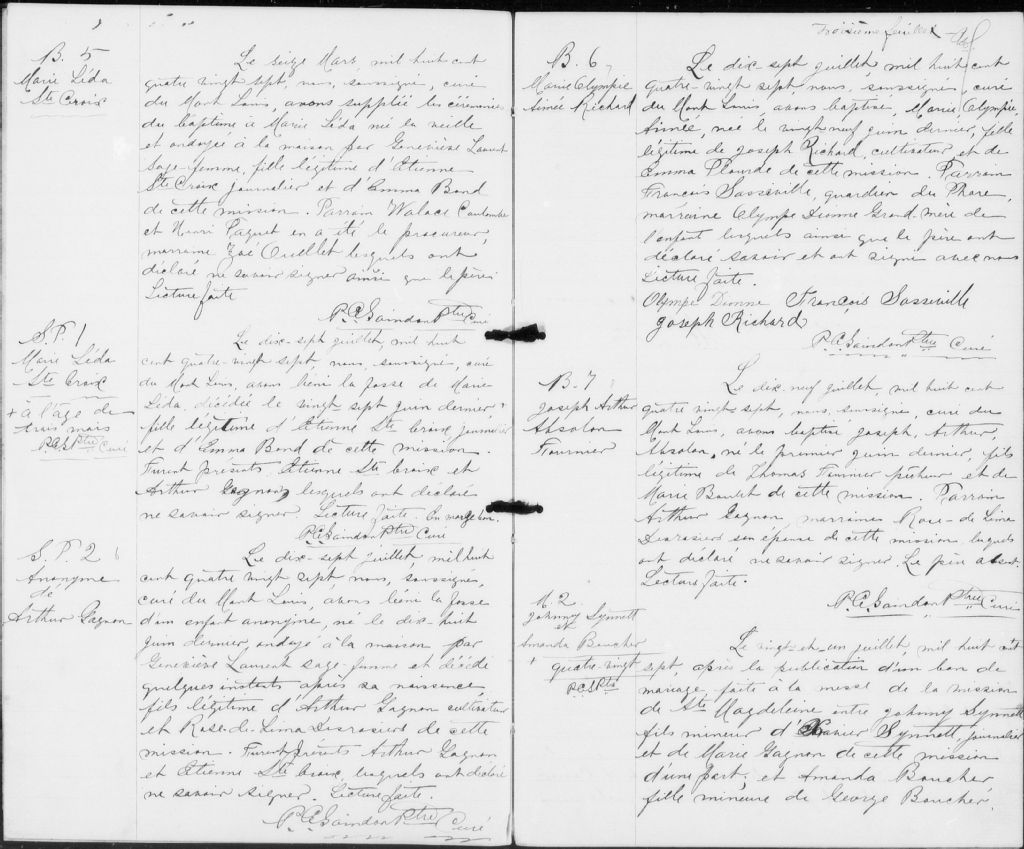 B. 5
Marie Léda
Ste Croix
Le seize Mars, mil huit cent
quatre vingt sept, nous, soussigné, curé
du Mont Louis, avons supplié les cérémonies
du baptême à Marie Léda née la veille
et ondoyée à la maison par Geneviève Laurent
sage-femme, fille légitime d'Etienne
Ste Croix journalier et d'Emma Bond
de cette mission. Parrain Walace Coulombe
et Henri Paquet en a été le procureur,
marraine Zoé Ouellet lesquels ont
déclaré ne savoir signer ainsi que le père.
Lecture faite
P.C. Saindon Ptre Curé
S.P. 1
Marie Léda
Ste Croix
+ à l'age de
trois mois
P.C.S. Ptre Curé
Le dix-sept juillet, mil huit
cent quatre-vingt sept, nous, soussigné, curé
du Mont Louis, avons béni la fosse de Marie
Léda, décédée le vingt-sept juin dernier +
fille légitime d'Etienne Ste Croix journalier
et d'Emma Bond de cette mission.
Furent présents Etienne Ste Croix et
Arthur Gagnon, lesquels ont déclaré
ne savoir signer. Lecture faite. En marge bon.
P.C. Saindon Ptre Curé
S.P. 2
Anonyme
de
Arthur Gagnon
Le dix-sept juillet, mil huit
cent quatre vingt sept nous, soussigné,
curé du Mont Louis, avons béni la fosse
d'un enfant anonyme, né le dix-huit
juin dernier, ondoyé à la maison par
Geneviève Laurent sage-femme et décédé
quelques instants après sa naissance,
fils légitime d'Arthur Gagnon cultivateur
et Rose-de-Lima Desrosiers de cette
mission. Furent présents Arthur Gagnon
et Etienne Ste Croix, lesquels ont déclaré
ne savoir signer. Lecture faite.
P.C. Saindon Ptre Curé
Troisième feuillet
B. 6
Marie Olympie
Aimée Richard
Le dix-sept juillet, mil huit cent
quatre-vingt sept nous, soussigné, curé
du Mont Louis, avons baptisé, Marie, Olympie,
Aimée, née le vingt neuf juin dernier, fille
légitime de Joseph Richard, cultivateur et de
Emma Plourde de cette mission. Parrain
François Sasseville, guardien du Phare,
marreine Olympe Dionne Grand-mère de
l'enfant lesquels ainsi que le père ont
déclaré savoir et ont signé avec nous
Lecture faite.
Olympe Dionne François Sasseville
Joseph Richard
P.C. Saindon Ptre Curé
B. 7
Joseph Arthur
Absolon
Fournier
Le dix-neuf juillet, mil huit cent
quatre vingt sept, nous, soussigné, curé du
Mont Louis, avons baptisé Joseph, Arthur,
Absolon, né le premier juin dernier, fils
légitime de Thomas Fournier pêcheur et de
Marie Boulet de cette mission. Parrain
Arthur Gagnon, marraine Rose-de Lima
Desrosier son épouse de cette mission lesquels
ont déclaré ne savoir signer. Le père absent.
Lecture faite.
P.C. Saindon Ptre Curé
M. 2
Johnny Synnett
et
Amanda Boucher
+ quatre-vingt
P.C.S. Ptre
Le vingt-et-un juillet, mil huit cent +
sept, après la publication d'un ban de
mariage, faite à la messe de la mission
de Ste Magdeleine entre Johnny Synnett
fils mineur d'Xavier Synnott, journalier
et de Marie Gagnon de cette mission
d'une part; et Amanda Boucher
fille mineure de George Boucher,